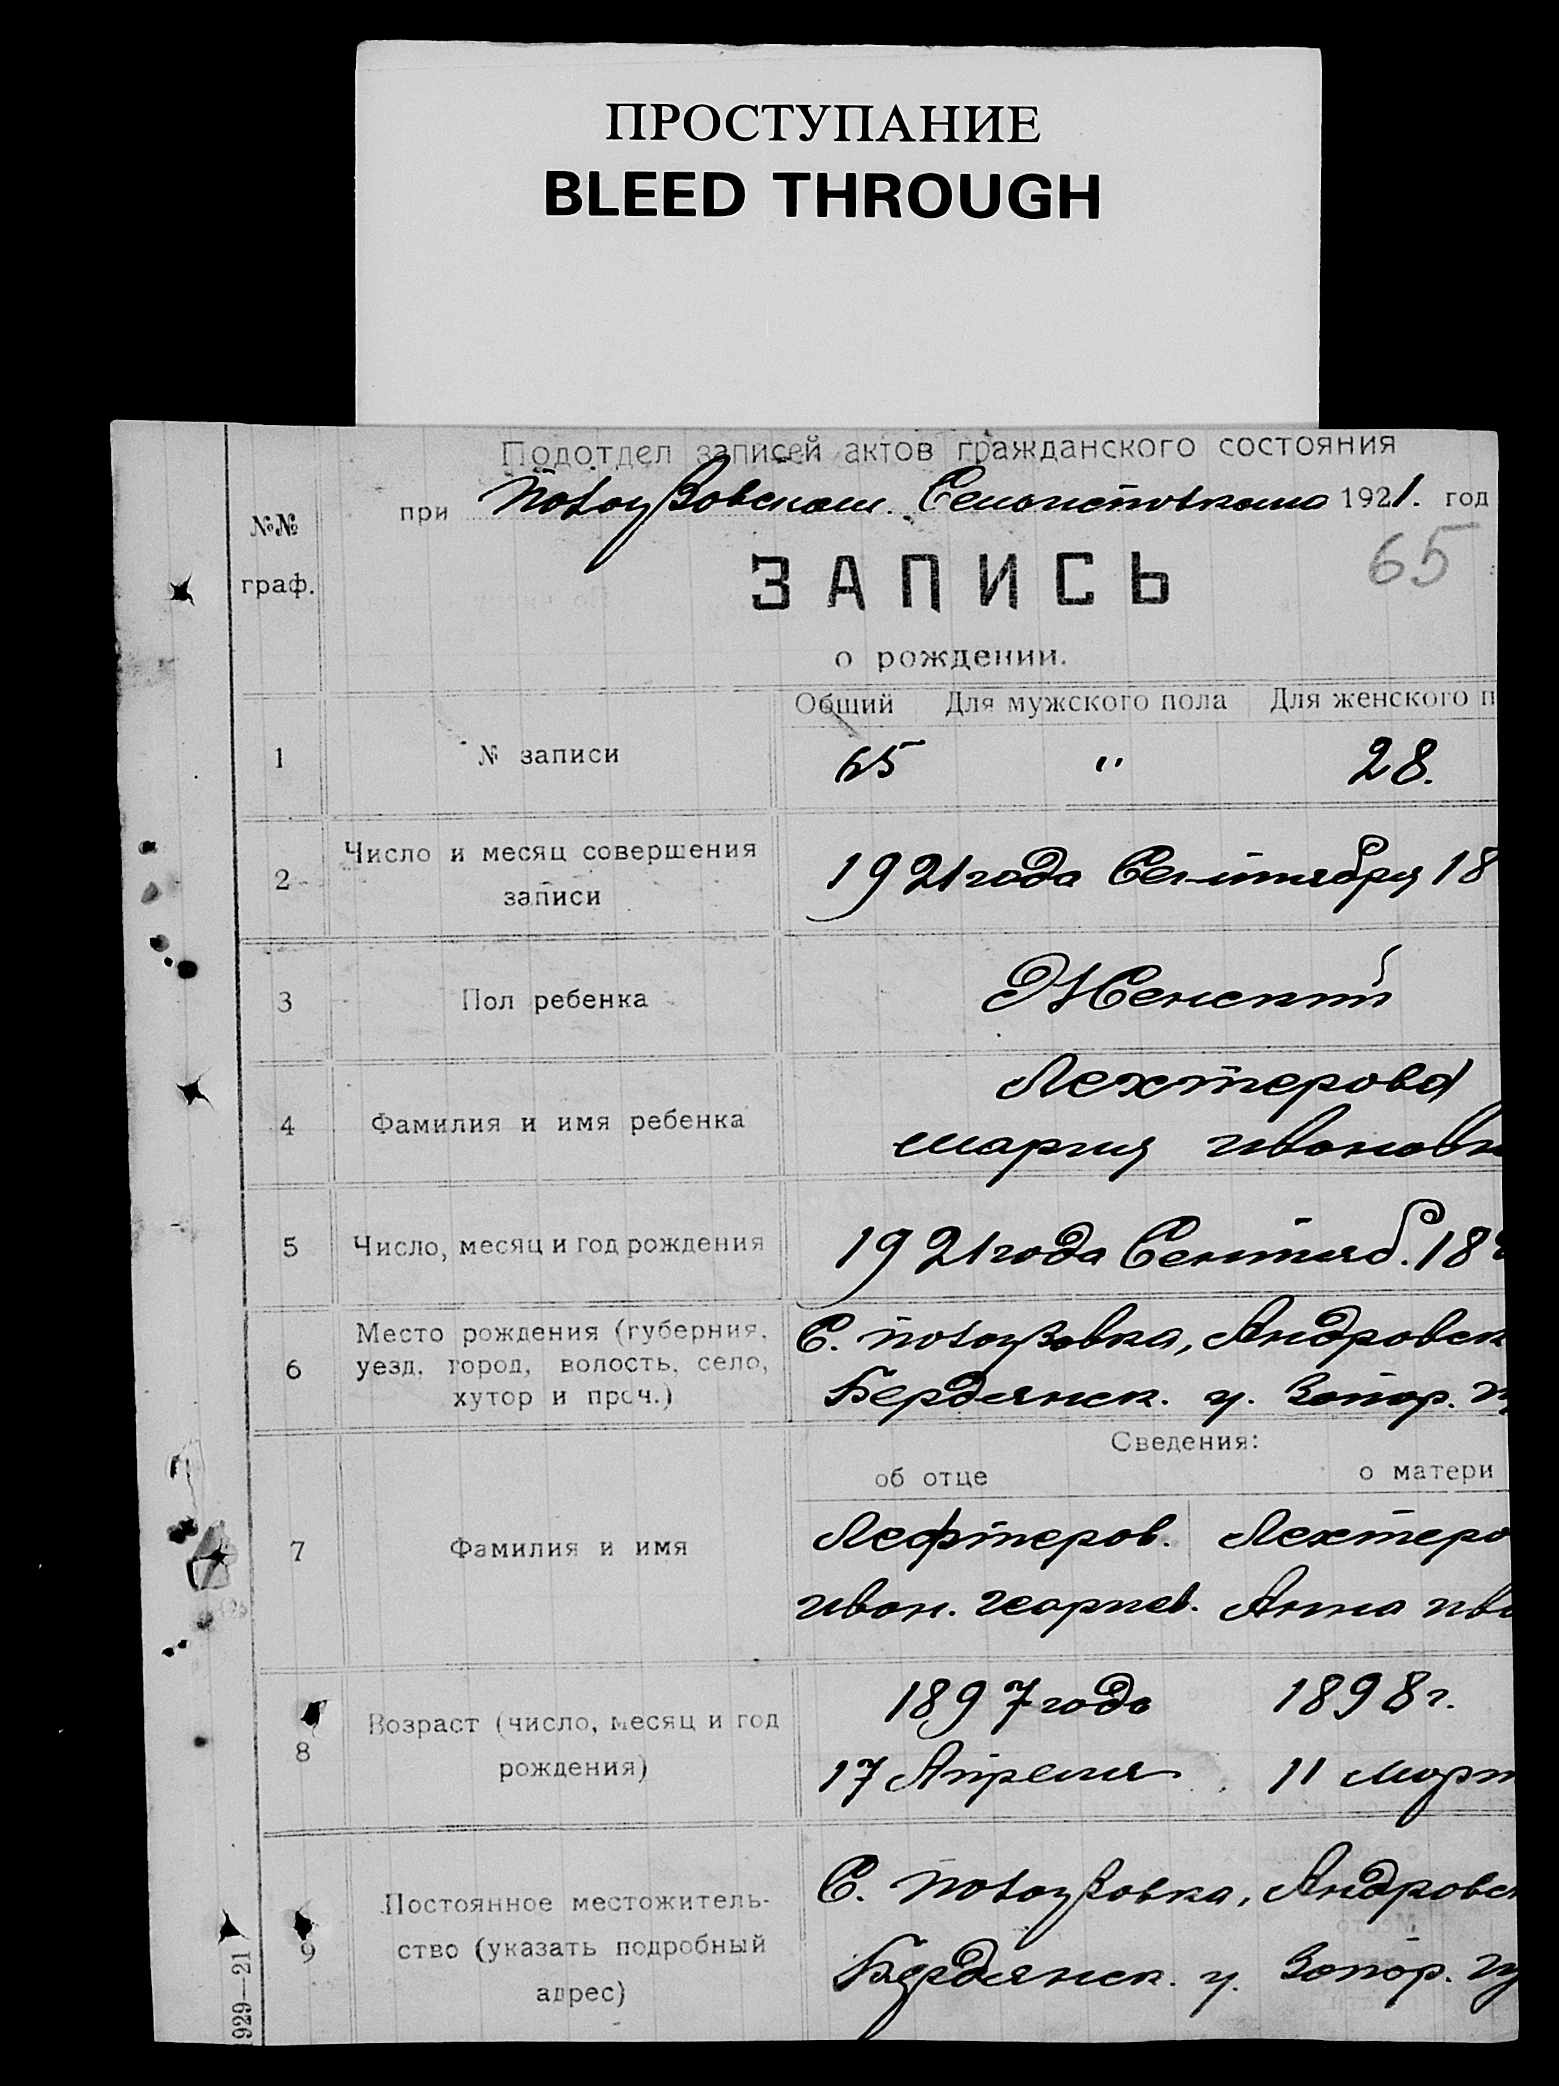 ПРОСТУПАНИЕ
BLEED THROUGH
Подотдел записей актов гражданского состояния
при 1921. год
№№
граф.
65
ЗАПИСЬ
о рождении.
Общий Для мужского пола Для женского п
1 № записи 65 " 28.
2 Число и месяц совершения
записи
1921 года Сентября 18
3 Пол ребенка Женский
4 Фамилия и имя ребенка
Лехтерова
Мария Ивановн
5 Число, месяц и год рождения 1921 года Сентяб. 18
6 Место рождения (губерния,
уезд, город, волость, село,
хутор и проч.)
С. Андровск
Бердянск. у. Запор. гу
Сведения:
об отце о матери
7 Фамилия и имя
Лефтеров. Лехтеро
Иван. Георгиев. Анна Ива
8 Возраст (число, месяц и год
рождения)
1897 года 1898 г.
17 Апреля 11 Март
9 Постоянное местожитель-
ство (указать подробный
адрес)
С. Андровск
Бердянск. у. Запор. гу
929—21